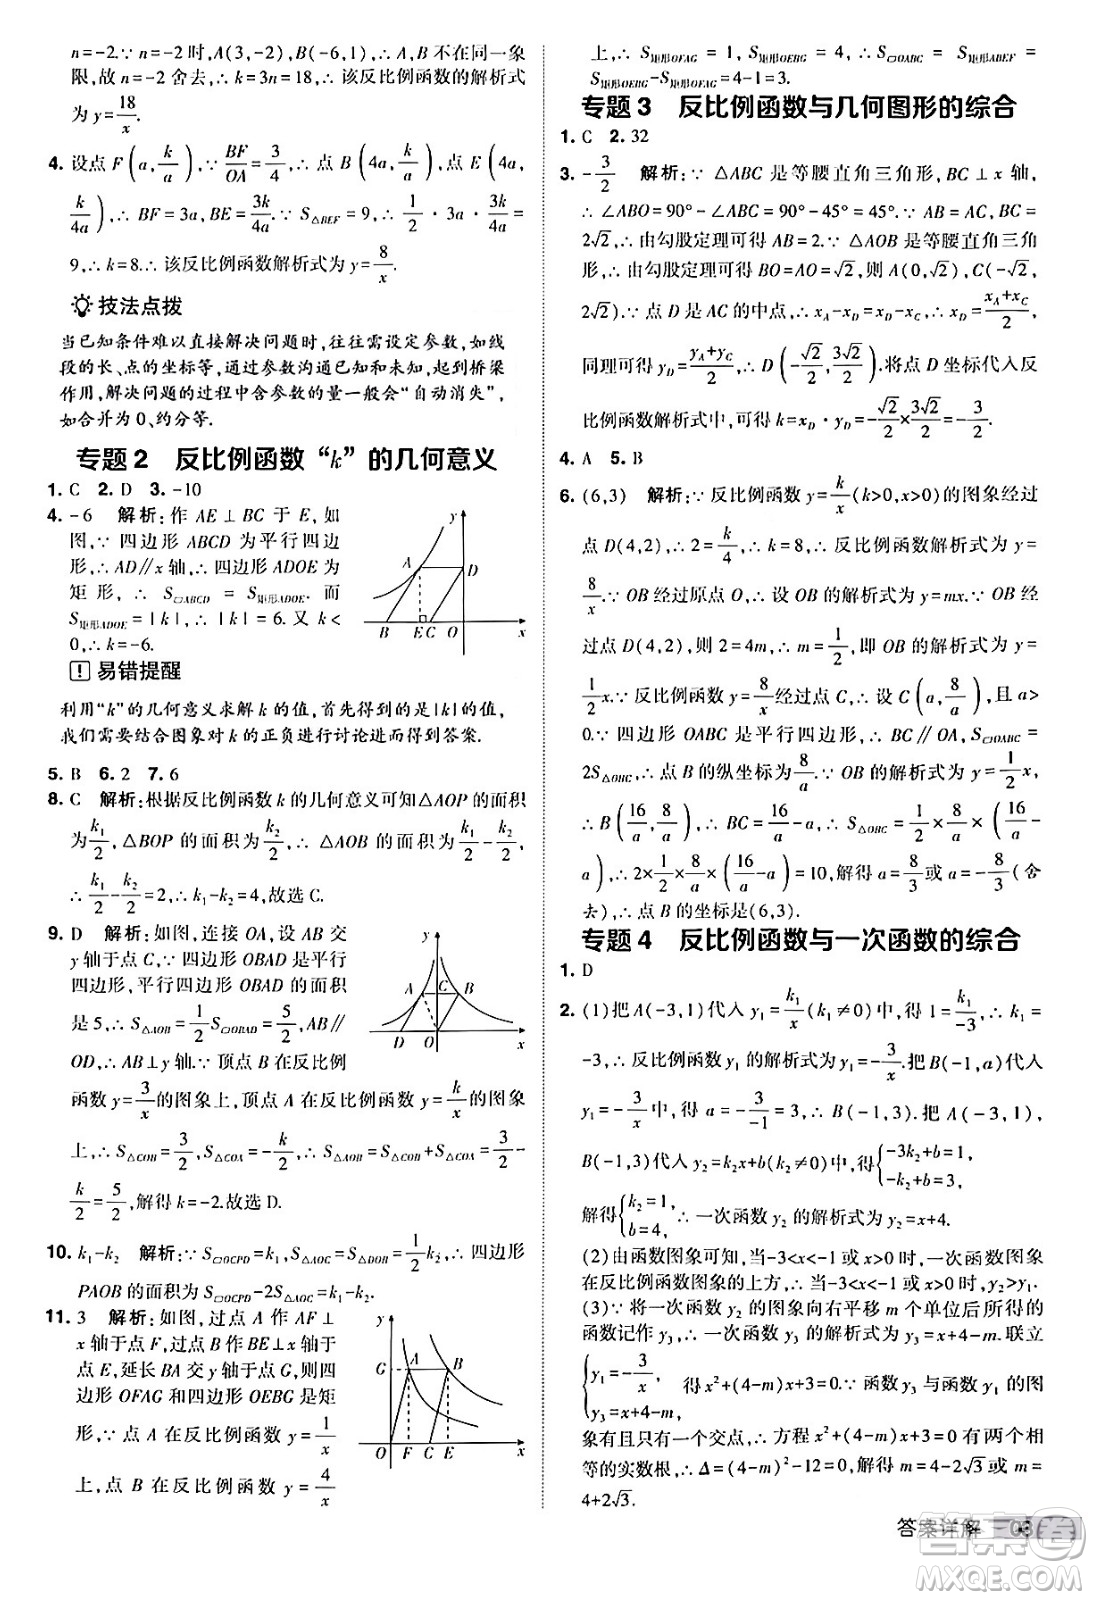 n=-2.∵n=-2时,A(3,-2),B(-6,1),∴A,B不在同一象
限,故n=-2舍去,∴k=3n=18,∴该反比例函数的解析式
为y=18/x.
4. 设点F(a,k/a),∵BF/OA=3/4,∴点B(4a,k/a),点E(4a,
k/4a),∴BF=3a,BE=3k/4a.∵S△BEF=9,∴1/2·3a·3k/4a=
9,∴k=8.∴该反比例函数解析式为y=8/x.
技法点拨
当已知条件难以直接解决问题时,往往需设定参数,如线
段的长、点的坐标等,通过参数沟通已知和未知,起到桥梁
作用,解决问题的过程中含参数的量一般会“自动消失”,
如合并为0、约分等.
专题2 反比例函数“k”的几何意义
1. C 2. D 3. -10
4. -6 解析:作AE⊥BC于E,如
图,∵四边形ABCD为平行四边
形,∴AD∥x轴,∴四边形ADOE为
矩形,∴S▱ABCD=S矩形ADOE.而
S矩形ADOE=|k|,∴|k|=6.又k<
0,∴k=-6.
y
A
D
B
E
C
O
x
易错提醒
利用“k”的几何意义求解k的值,首先得到的是|k|的值,
我们需要结合图象对k的正负进行讨论进而得到答案.
5. B 6. 2 7. 6
8. C 解析:根据反比例函数k的几何意义可知△AOP的面积
为k₁/2,△BOP的面积为k₂/2,∴△AOB的面积为k₁/2-k₂/2,
∴k₁/2-k₂/2=2,∴k₁-k₂=4,故选C.
9. D 解析:如图,连接OA,设AB交
y轴于点C,∵四边形OBAD是平行
四边形,平行四边形OBAD的面积
是5,∴S△AOB=1/2S▱OBAD=5/2,AB∥
OD,∴AB⊥y轴.∵顶点B在反比例
y
A
C
B
D
O
x
函数y=3/x的图象上,顶点A在反比例函数y=k/x的图象
上,∴S△COB=3/2,S△COA=-k/2,∴S△AOB=S△COB+S△COA=3/2-
k/2=5/2,解得k=-2.故选D.
10. k₁-k₂ 解析:∵S▱OCPD=k₁,S△AOC=S△DOB=1/2k₂,∴四边形
PAOB的面积为S▱OCPD-2S△AOC=k₁-k₂.
11. 3 解析:如图,过点A作AF⊥
x轴于点F,过点B作BE⊥x轴于
点E,延长BA交y轴于点G,则四
边形OFAG和四边形OEBG是矩
形,∵点A在反比例函数y=1/x
上,点B在反比例函数y=4/x
y
G
A
B
O
F
C
E
x
上,∴S矩形OFAG=1,S矩形OEBG=4,∴S▱OABC=
S矩形OEBG-S矩形OFAG=4-1=3.
专题3 反比例函数与几何图形的综合
1. C 2. 32
3. -3/2 解析:∵△ABC是等腰直角三角形,BC⊥x轴,
∴∠ABO=90°-∠ABC=90°-45°=45°.∵AB=AC,BC=
2√2,∴由勾股定理可得AB=2.∵△AOB是等腰直角三角
形,∴由勾股定理可得BO=AO=√2,则A(0,√2),C(-√2,
2√2).∵点D是AC的中点,∴x_A-x_D=x_D-x_C,∴x_D=(x_A+x_C)/2,
同理可得y_D=(y_A+y_C)/2,∴D(-√2/2,3√2/2).将点D坐标代入反
比例函数解析式中,可得k=x_D·y_D=-√2/2×3√2/2=-3/2.
4. A 5. B
6. (6,3) 解析:∵反比例函数y=k/x(k>0,x>0)的图象经过
点D(4,2),∴2=k/4,∴k=8,∴反比例函数解析式为y=
8/x.∵OB经过原点O,∴设OB的解析式为y=mx.∵OB经
过点D(4,2),则2=4m,∴m=1/2,即OB的解析式为y=
1/2x.∵反比例函数y=8/x经过点C,∴设C(a,8/a),且a>
0.∵四边形OABC是平行四边形,∴BC∥OA,S▱OABC=
2S△OBC,∴点B的纵坐标为8/a.∵OB的解析式为y=1/2x,
∴B(16/a,8/a),∴BC=16/a-a,∴S△OBC=1/2×8/a×(16/a-
a),∴2×1/2×8/a×(16/a-a)=10,解得a=8/3或a=-8/3(舍
去),∴点B的坐标是(6,3).
专题4 反比例函数与一次函数的综合
1. D
2. (1)把A(-3,1)代入y₁=k₁/x(k₁≠0)中,得1=k₁/-3,∴k₁=
-3,∴反比例函数y₁的解析式为y₁=-3/x.把B(-1,a)代入
y₁=-3/x中,得a=-3/-1=3,∴B(-1,3).把A(-3,1),
B(-1,3)代入y₂=k₂x+b(k₂≠0)中,得{-3k₂+b=1, -k₂+b=3,
解得{k₂=1, b=4,∴一次函数y₂的解析式为y₂=x+4.
(2)由函数图象可知,当-3<x<-1或x>0时,一次函数图象
在反比例函数图象的上方,∴当-3<x<-1或x>0时,y₂>y₁.
(3)∵将一次函数y₂的图象向右平移m个单位后所得的
函数记作y₃,∴一次函数y₃的解析式为y₃=x+4-m.联立
{y₁=-3/x, y₃=x+4-m, 得x²+(4-m)x+3=0.∵函数y₃与函数y₁的图
象有且只有一个交点,∴方程x²+(4-m)x+3=0有两个相
等的实数根,∴Δ=(4-m)²-12=0,解得m=4-2√3或m=
4+2√3.
答案详解 03
答案圈
MXQE.COM